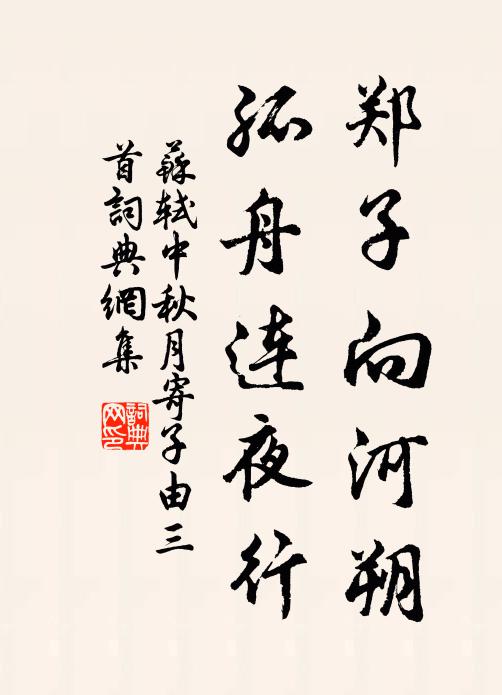 郑子向河朔
孤舟连夜行
蘇軾中秋月寄子由三
首詞典網集
詞典
网印